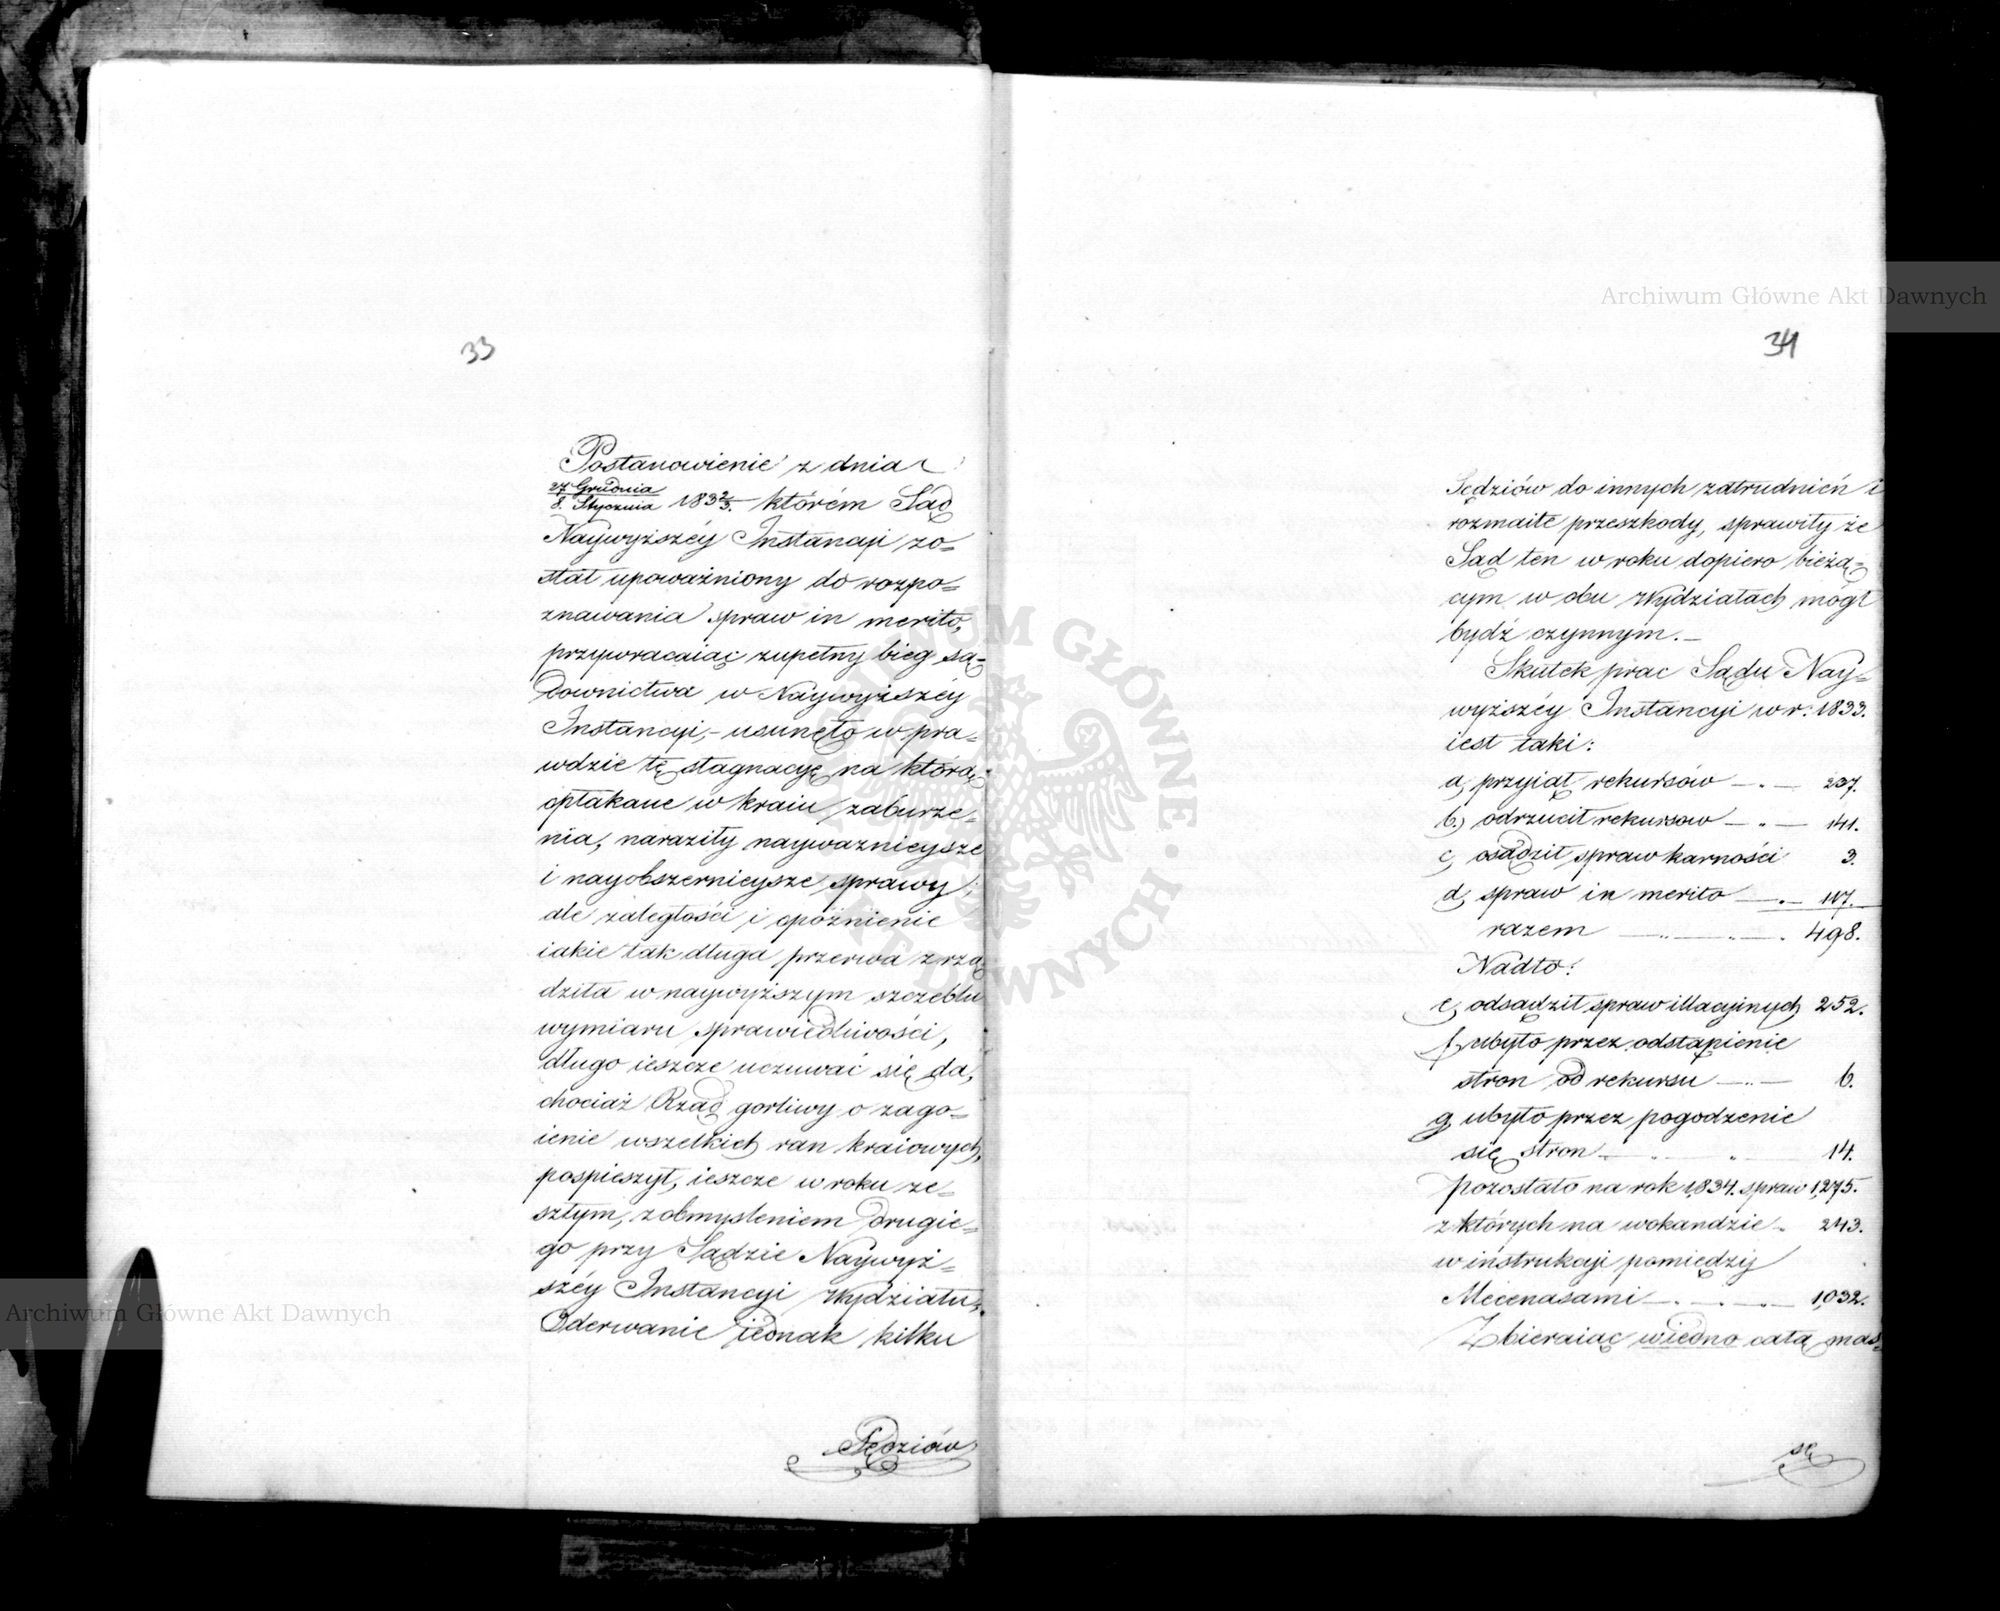 33
Postanowienie z dnia
27 Grudnia
8. Stycznia 183 2/3. którém Sąd
Naywyższéy Instancyi zo=
stał upoważniony do rozpo=
znawania spraw in merito,
przywracaiąc zupełny bieg są=
downictwa w Naywyższéy
Instancyi, - usunęło w pra=
wdzie tę stagnacyę na którą
opłakane w kraiu zaburze=
nia, naraziły nayważnieysze
i nayobszernieysze sprawy;
ale zaległości i opóźnienie
iakie tak długa przerwa zrzą
dziła w naywyższym szczeblu
wymiaru sprawiedliwości,
długo ieszcze uczuwać się da,
chociaż Rząd gorliwy o zago=
ienie wszelkich ran kraiowych,
pospieszył, ieszcze w roku ze=
szłym, z obmysleniem drugie=
go przy Sądzie Naywyż=
széy Instancyi Wydziału.
Oderwanie iednak kilku
Sędziów
34
Sędziów do innych zatrudnień i
rozmaite przeszkody, sprawiły że
Sąd ten w roku dopiero bieżą=
cym w obu Wydziałach mógł
bydź czynnym. -
Skutek prac Sądu Nay=
wyższéy Instancyi w r: 1833.
iest taki:
a, przyiął rekursów — . — 237.
b.) odrzucił rekursow — „ — 141.
c, osądził spraw karności 3.
d, spraw in merito — . — 117.
razem — „ — „ — . 498.
Nadto:
e, odsądził spraw illacyinych 252.
f, ubyło przez odstąpienie
stron od rekursu — „ — 6.
g, ubyło przez pogodzenie
się stron — „ „ — 14.
Pozostało na rok 1834. spraw 1,275.
z których na wokandzie „ 243.
w instrukcyi pomiędzy
Mecenasami — . — . — 1,032.
Zbieraiąc wiedno całą mas=
sę
Archiwum Główne Akt Dawnych
Archiwum Główne Akt Dawnych
ARCHIWUM GŁÓWNE AKT DAWNYCH